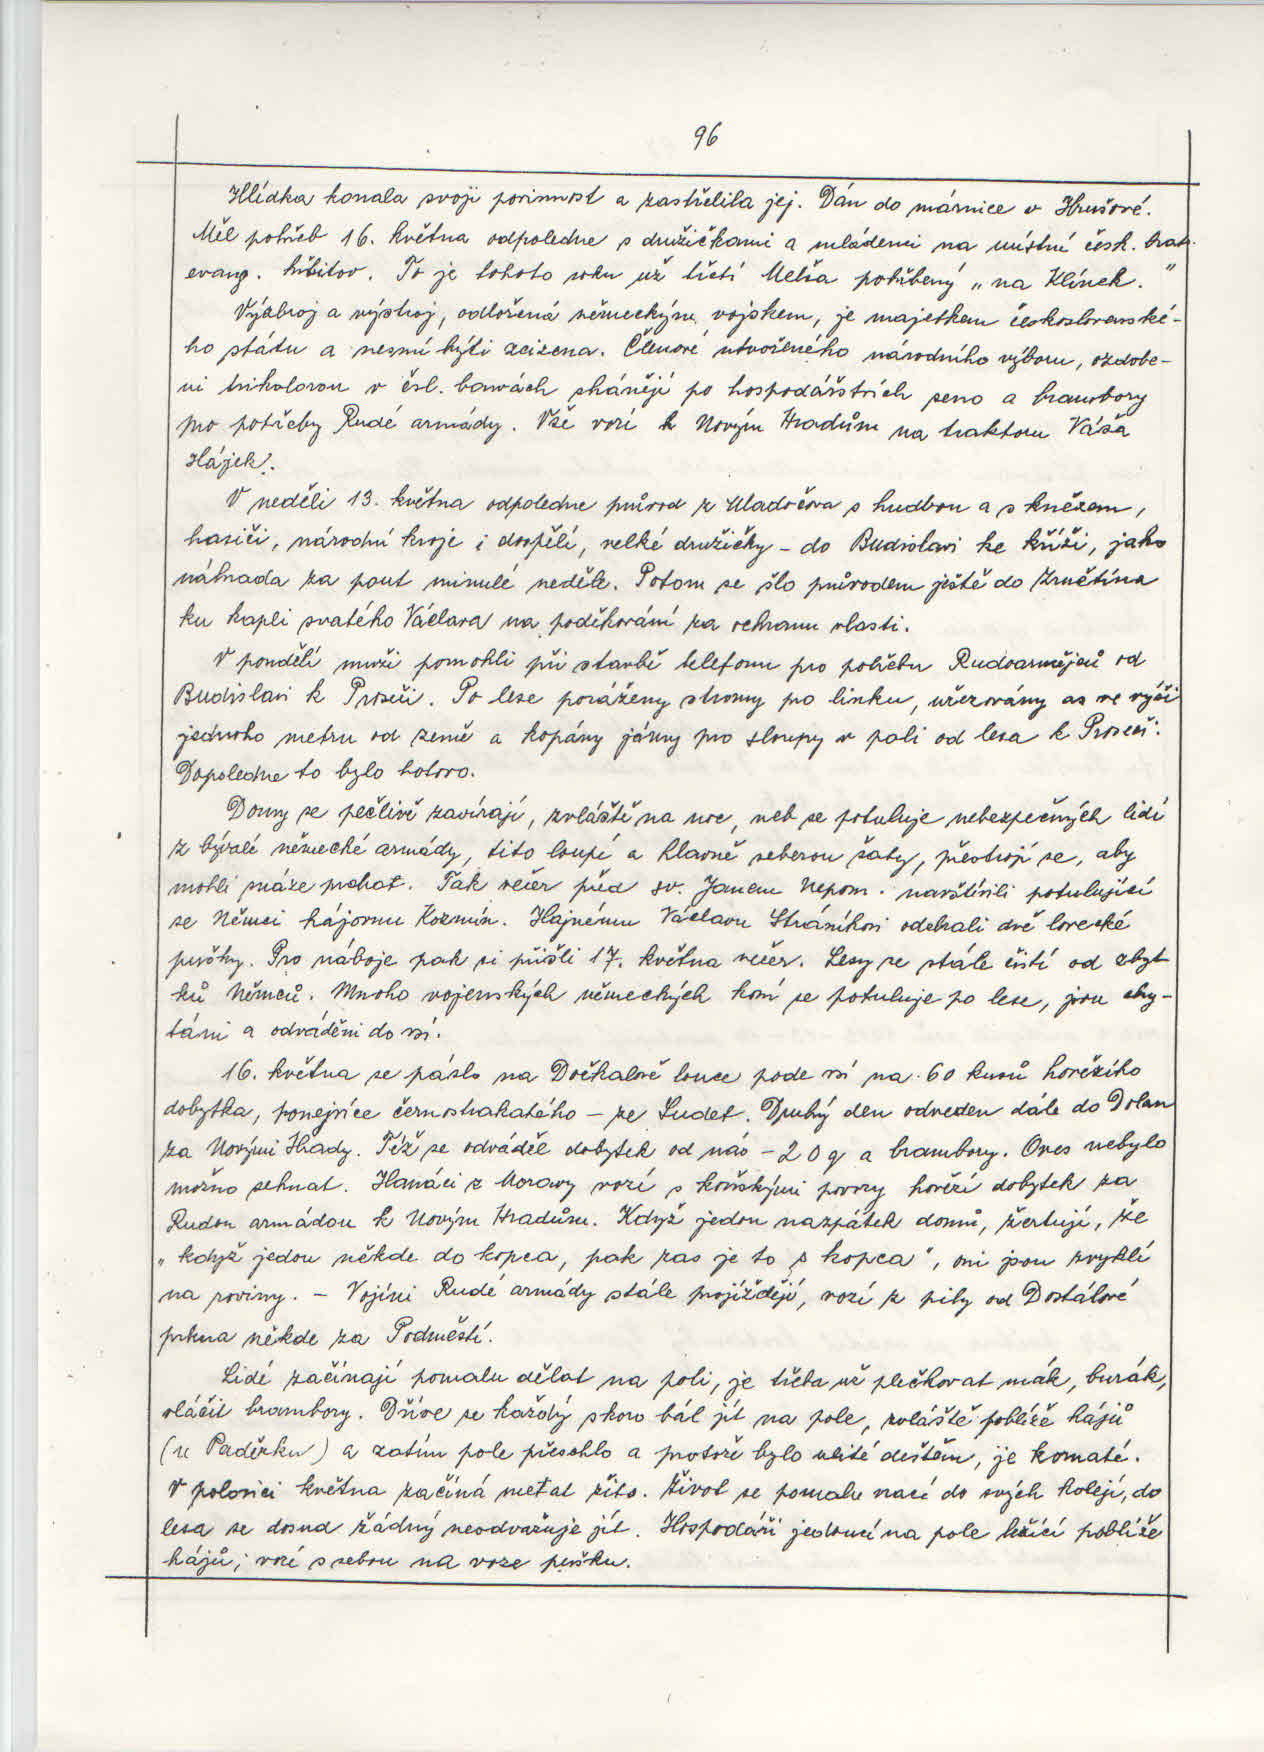 96
Hlídka konala svoji povinnost a zastřelila jej. Dán do márnice v Hrušové.
Měl pohřeb 16. května odpoledne s družičkami a mládenci na místní česk. bratr.
evang. hřbitov. To je tohoto roku už třetí Melša pohřbený „na Klínek."
Výzbroj a výstroj, odložená německým vojskem, je majetkem československé-
ho státu a nesmí býti zcizena. Členové utvořeného národního výboru, ozdobe-
ni trikolorou v čsl. barvách shánějí po hospodářstvích seno a brambory
pro potřeby Rudé armády. Vše vozí k Novým Hradům na traktoru Váša
Hájek.
V neděli 13. května odpoledne průvod z Mladočova s hudbou a s knězem,
hasiči, národní kroje i dospělí, velké družičky – do Budislavi ke kříži, jako
náhrada za pout minulé neděle. Potom se šlo průvodem ještě do Zrnětína
ku kapli svatého Václava na poděkování za ochranu vlasti.
V pondělí muži pomohli při stavbě telefonu pro potřebu Rudoarmějců od
Budislavi k Proseči. Po lese poráženy stromy po linku, uřezovány as ve výši
jednoho metru od země a kopány jámy pro sloupy v poli od lesa k Proseči.
Dopoledne to bylo hotovo.
Domy se pečlivě zavírají, zvláště na noc, neb se potuluje nebezpečných lidí
z bývalé německé armády, tito loupí a hlavně seberou šaty, přestrojí se, aby
mohli snáze prchat. Tak večer před sv. Janem Nepom. navštívili potulující
se Němci hájovnu Kozmín. Hajnému Václavu Stráníkovi odebrali dvě lovecké
pušky. Pro náboje pak si přišli 17. května večer. Lesy se stále čistí od zbyt
ků Němců. Mnoho vojenských německých koní se potuluje po lese, jsou chy-
táni a odváděni do vsí.
16. května se páslo na Dočkalově louce pode vsí na 60 kusů hovězího
dobytka, ponejvíce černostrakatého – ze Sudet. Druhý den odveden dále do Dolan
za Novými Hrady. Též se odváděl dobytek od nás – 20 q a brambory. Oves nebylo
možno sehnat. Hanáci z Moravy vozí s koňskými povozy hovězí dobytek za
Rudou armádou k Novým Hradům. Když jedou nazpátek domů, žertují, že
„když jedou někde do kopca, pak zas je to s kopca", oni jsou zvyklí
na roviny. – Vojíni Rudé armády stále projíždějí, vozí z pily od Dostálové
prkna někde za Podměstí.
Lidé začínají pomalu dělat na poli, je třeba už plečkovat mák, burák,
vláčit brambory. Dříve se každý skoro bál jít na pole, zvláště poblíže hájů
(u Paděrku) a zatím pole přeschlo a protože bylo ulité deštěm, je kornaté.
V polovici května začíná metat žito. Život se pomalu vrací do svých kolejí, do
lesa se dosud žádný neodvažuje jít. Hospodáři jedoucí na pole ležící poblíže
hájů, vozí s sebou na voze pušku.